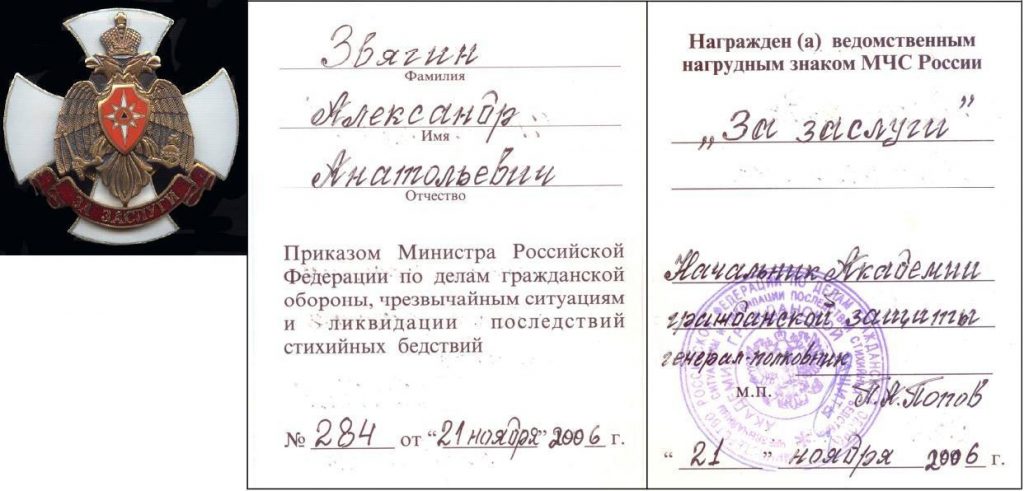 ЗА ЗАСЛУГИ
Звягин
Фамилия
Александр
Имя
Анатольевич
Отчество
Приказом Министра Российской
Федерации по делам гражданской
обороны, чрезвычайным ситуациям
и ликвидации последствий
стихийных бедствий
№ 284 от "21 ноября" 2006 г.
Награжден (а) ведомственным
нагрудным знаком МЧС России
„За заслуги”
Начальник Академии
гражданской защиты
генерал-полковник
м.п. П.А.Попов
"21" ноября 2006 г.